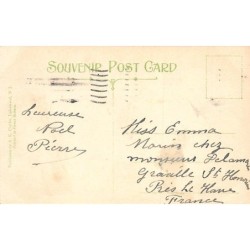 SOUVENIR POST CARD
heureuse
Noel
Pierre
Miss Emma
Morin chez
monsieur Delamare
Graville St Honorine
Près le Havre
France